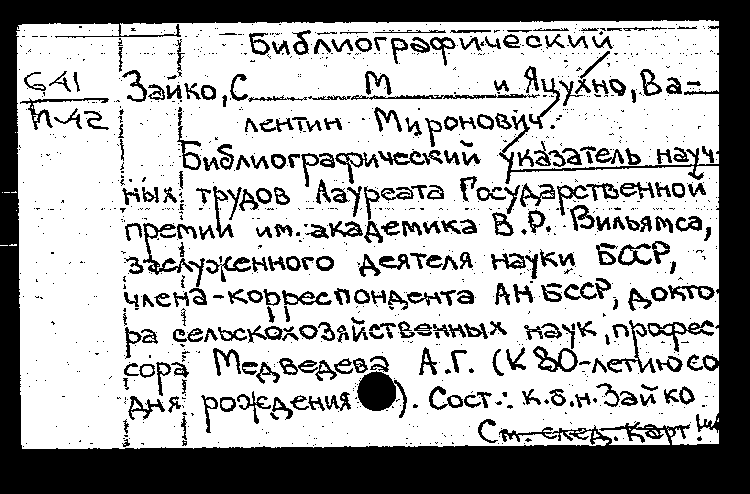 Библиографический
Зайко, С М и Яцухно, Ва-
лентин Миронович.
Библиографический указатель науч-
ных трудов Лауреата Государственной
премии им. академика В.Р. Вильямса,
заслуженного деятеля науки БССР,
члена-корреспондента АН БССР, докто-
ра сельскохозяйственных наук, профес-
сора Медведева А.Г. (К 80-летию со
дня рождения). Сост.: к.б.н. Зайко
См. след. карт!